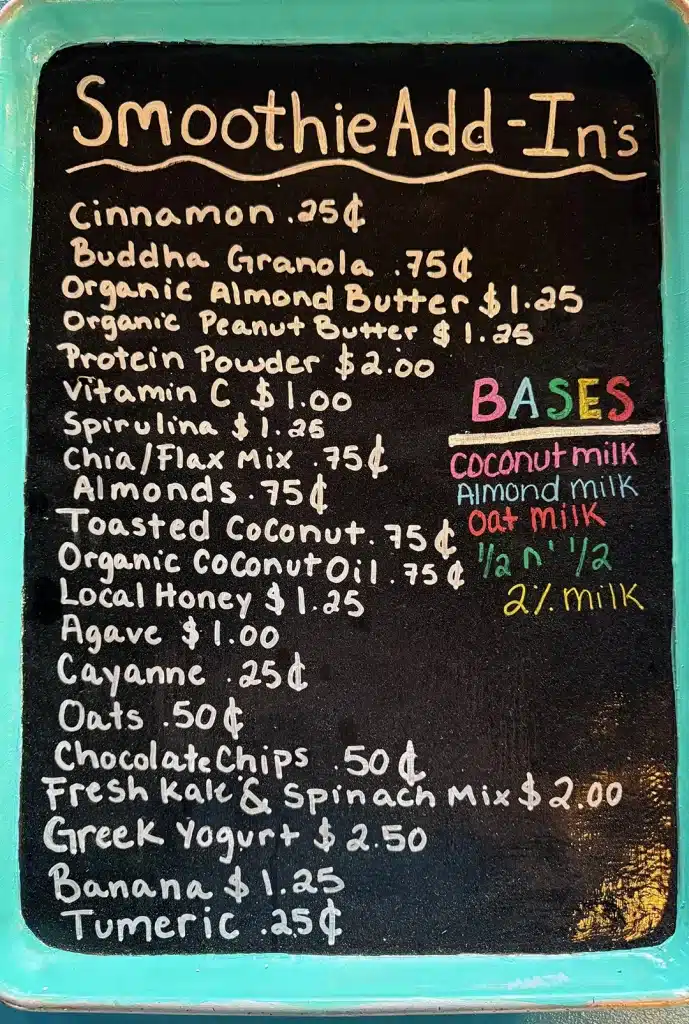 Smoothie Add-Ins
Cinnamon .25¢
Buddha Granola .75¢
Organic Almond Butter $1.25
Organic Peanut Butter $1.25
Protein Powder $2.00
Vitamin C $1.00
Spirulina $1.25
Chia/Flax Mix .75¢
Almonds .75¢
Toasted Coconut .75¢
Organic Coconut Oil .75¢
Local Honey $1.25
Agave $1.00
Cayanne .25¢
Oats .50¢
Chocolate Chips .50¢
Fresh Kale & Spinach Mix $2.00
Greek Yogurt $2.50
Banana $1.25
Tumeric .25¢
BASES
Coconut milk
Almond milk
Oat milk
1/2 n' 1/2
2% milk